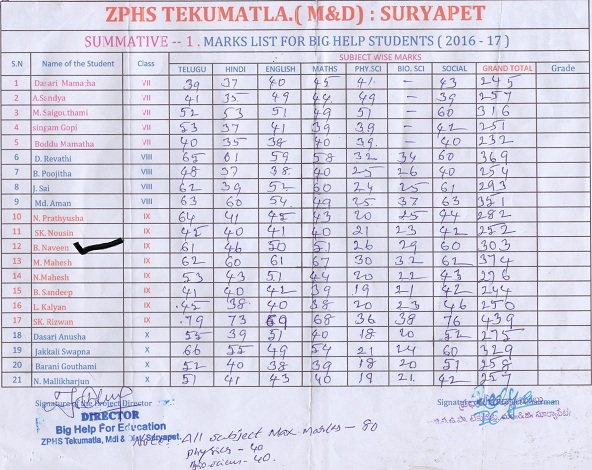 ZPHS TEKUMATLA.( M&D) : SURYAPET
SUMMATIVE -- 1 . MARKS LIST FOR BIG HELP STUDENTS ( 2016 - 17 )
S.N Name of the Student Class SUBJECT WISE MARKS
TELUGU HINDI ENGLISH MATHS PHY.SCI BIO. SCI SOCIAL GRAND TOTAL Grade
1 Dasari Mamatha VII 39 37 40 45 41 - 43 245
2 A.Sandya VII 41 35 49 44 49 - 39 257
3 M. Saigouthami VII 52 53 51 49 51 - 60 316
4 singam Gopi VII 53 37 41 39 39 - 42 251
5 Boddu Mamatha VII 40 35 38 40 39 - 40 232
6 D. Revathi VIII 65 61 59 58 32 34 60 369
7 B. Poojitha VIII 48 37 38 40 25 26 40 254
8 J. Sai VIII 62 39 52 60 24 25 61 293
9 Md. Aman VIII 63 60 54 49 25 37 63 351
10 N. Prathyusha IX 64 41 45 43 20 25 44 282
11 SK. Nousin IX 45 40 41 40 21 23 42 252
12 B. Naveen IX 61 46 50 51 26 29 60 303
13 M. Mahesh IX 62 60 61 67 30 32 62 374
14 N.Mahesh IX 53 43 51 44 20 22 43 276
15 B. Sandeep IX 41 40 42 39 19 21 42 244
16 L. Kalyan IX 45 38 40 38 20 23 46 250
17 SK. Rizwan IX 79 73 69 68 36 38 76 439
18 Dasari Anusha X 55 39 51 40 18 20 52 275
19 Jakkali Swapna X 66 55 49 54 21 24 60 329
20 Barani Gouthami X 52 40 38 39 18 20 51 258
21 N. Mallikharjun X 51 41 43 40 19 21 42 257
Signature of the Project Director Signature of the Chairman
DIRECTOR
Big Help For Education
ZPHS Tekumatla, Mdl & Suryapet.
Note: All subject Max. Marks - 80
physics - 40